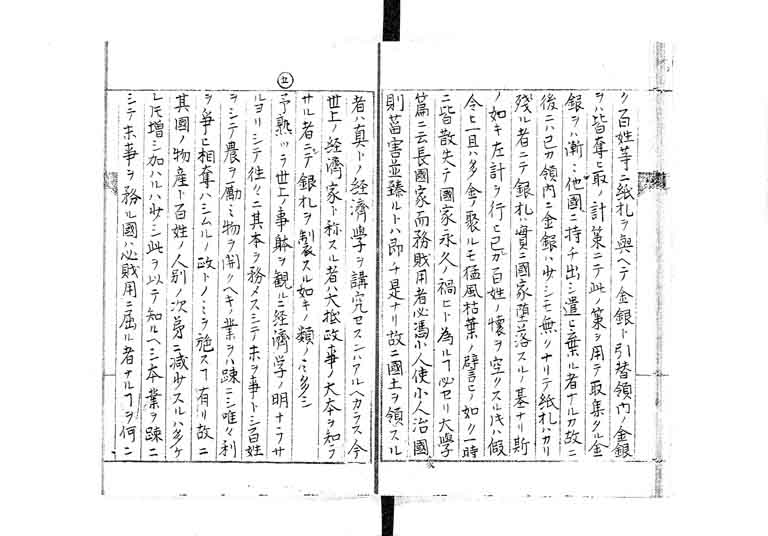 ク百姓等ニ紙札ヲ與ヘテ金銀ト引替領内ノ金銀
ヲハ皆奪ヒ取ノ計策ニテ此ノ策ヲ用テ取集タル金
銀ヲハ漸々他國ニ持チ出シ遣ヒ棄ル者ナルカ故ニ
後ニハ己カ領内ニ金銀ハ少シモ無クナリテ紙札ハカリ
殘ル者ニテ銀札ハ實ニ國家堕落スルノ基ナリ斯
ノ如キ左計ヲ行ヒ己カ百姓ノ懐ヲ空クスル氏ハ假
令ヒ一旦ハ多金ヲ聚ルモ猛風枯葉ノ譬ヒノ如ク一時
ニ皆散失テ國家永久ノ禍ヒト為ルヿ必セリ大學
篇ニ云長國家而務賎用者必馮小人使小人治國
則菑害並臻ルトハ即チ是ナリ故ニ國土ヲ領スル
者ハ真トノ経済學ヲ講究セスンハアルヘカラス今
世上ノ経濟家ト称スル者ハ大抵政事ノ大本ヲ知ラ
サル者ニテ銀札ヲ製スル如キノ類ノミ多シ
五
予熟ツラ世上ノ事躰ヲ観ルニ経済学ノ明ナラサ
ルヨリシテ往々ニ其本ヲ務メスシテ末ヲ事トシ百姓
ヲシテ農ヲ勵ミ物ヲ開クヘキノ業ヲハ踈ニシ唯々利
ヲ爭ヒ相奪ハシムルノ政トノミヲ施スヿ有リ故ニ
其國ノ物産ト百姓ノ人別ノ次第ニ減少スルハ多ケ
レ𪜈増シ加ハルハ少シ此ヲ以テ知ルヘシ本業ヲ踈ニ
シテ末事ヲ務ル國ハ必賎用ニ屈ル者ナルヿヲ何ニ